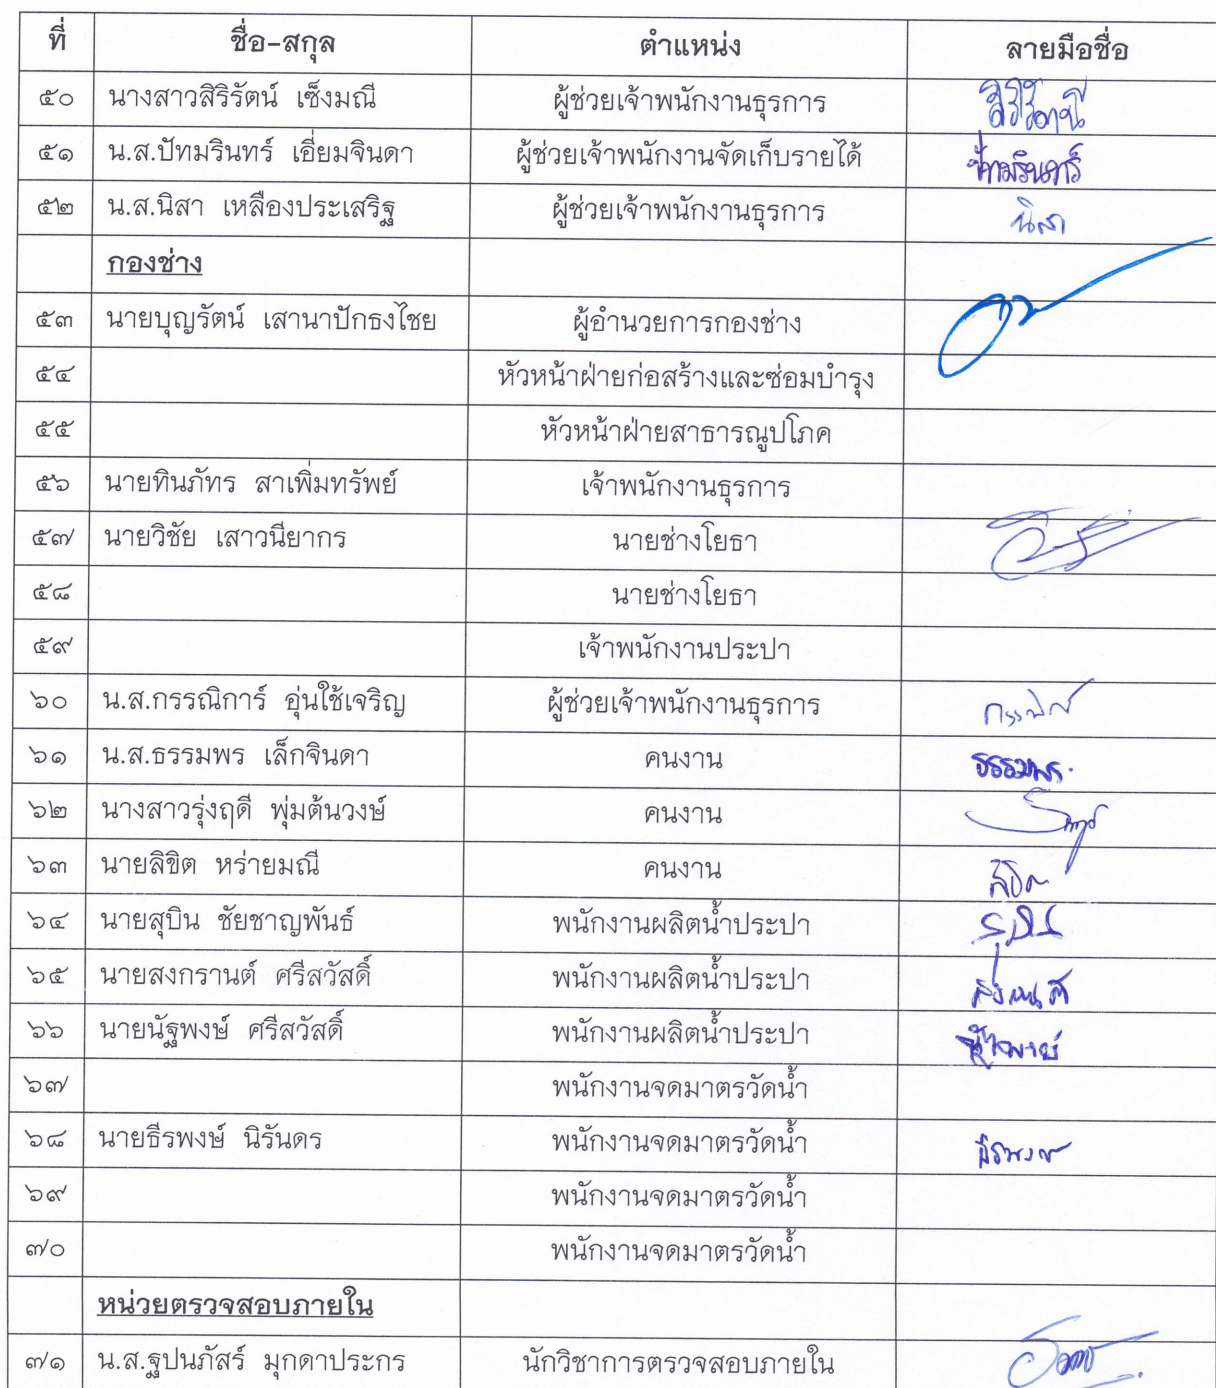 ที่ ชื่อ-สกุล ตำแหน่ง ลายมือชื่อ
๕๐ นางสาวสิริรัตน์ เซ็งมณี ผู้ช่วยเจ้าพนักงานธุรการ
๕๑ น.ส.ปัทมรินทร์ เอี่ยมจินดา ผู้ช่วยเจ้าพนักงานจัดเก็บรายได้ ปัทมรินทร์
๕๒ น.ส.นิสา เหลืองประเสริฐ ผู้ช่วยเจ้าพนักงานธุรการ นิสา
กองช่าง
๕๓ นายบุญรัตน์ เสานาปักธงไชย ผู้อำนวยการกองช่าง
๕๔ หัวหน้าฝ่ายก่อสร้างและซ่อมบำรุง
๕๕ หัวหน้าฝ่ายสาธารณูปโภค
๕๖ นายทินภัทร สาเพิ่มทรัพย์ เจ้าพนักงานธุรการ
๕๗ นายวิชัย เสาวนียากร นายช่างโยธา
๕๘ นายช่างโยธา
๕๙ เจ้าพนักงานประปา
๖๐ น.ส.กรรณิการ์ อุ่นใช้เจริญ ผู้ช่วยเจ้าพนักงานธุรการ
๖๑ น.ส.ธรรมพร เล็กจินดา คนงาน ธรรมพร
๖๒ นางสาวรุ่งฤดี พุ่มต้นวงษ์ คนงาน
๖๓ นายลิขิต หร่ายมณี คนงาน ลิขิต
๖๔ นายสุบิน ชัยชาญพันธ์ พนักงานผลิตน้ำประปา
๖๕ นายสงกรานต์ ศรีสวัสดิ์ พนักงานผลิตน้ำประปา
๖๖ นายนัฐพงษ์ ศรีสวัสดิ์ พนักงานผลิตน้ำประปา
๖๗ พนักงานจดมาตรวัดน้ำ
๖๘ นายธีรพงษ์ นิรันดร พนักงานจดมาตรวัดน้ำ ธีรพงษ์
๖๙ พนักงานจดมาตรวัดน้ำ
๗๐ พนักงานจดมาตรวัดน้ำ
หน่วยตรวจสอบภายใน
๗๑ น.ส.ฐปนภัสร์ มุกดาประกร นักวิชาการตรวจสอบภายใน